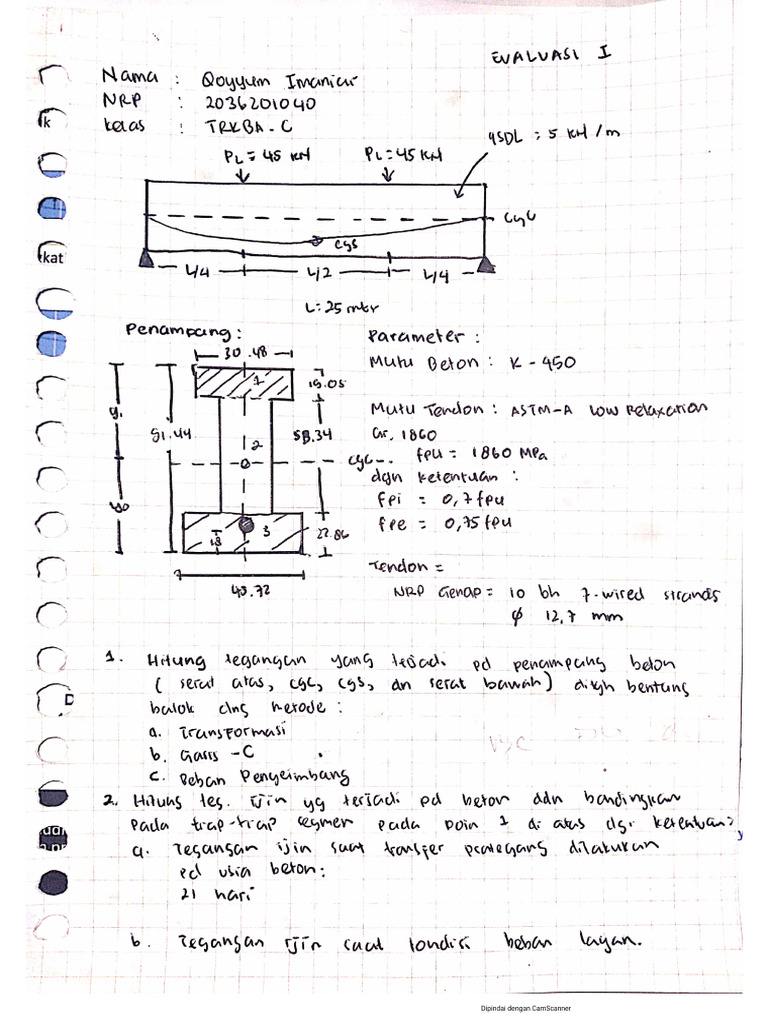 EVALUASI I
Nama : Qoyyum Imaniar
NRP : 2036201040
kelas : TRKBA-C
k
qSDL = 5 KN/m
PL = 45 KN PL = 45 KN
cgc
cgs
kat
L/4 L/2 L/4
L = 25 mtr
Penampang : Parameter :
30.48
Mutu Beton : K-450
1
15.05
Mutu Tendon : ASTM-A Low Relaxation
Gr. 1860
y1 91.44 2 58.34
fpu = 1860 MPa
cgc
dgn ketentuan :
fpi = 0,7 fpu
yb
fpe = 0,75 fpu
18 3 22.86
Tendon =
40.72
NRP Genap = 10 bh 7-wired strands
ϕ 12,7 mm
1. Hitung tegangan yang terjadi pd penampang beton
( serat atas, cgc, cgs, dn serat bawah) ditgh bentang
D
balok dng metode :
a. Transformasi
b. Garis -C
c. Beban Penyeimbang
2. Hitung teg. ijin yg terjadi pd beton dan bandingkan
pada tiap-tiap segmen pada poin 1 di atas dgn ketentuan :
a. Tegangan ijin saat transfer prategang dilakukan
pd usia beton :
21 hari
b. Tegangan ijin saat kondisi beban layan.
Dipindai dengan CamScanner